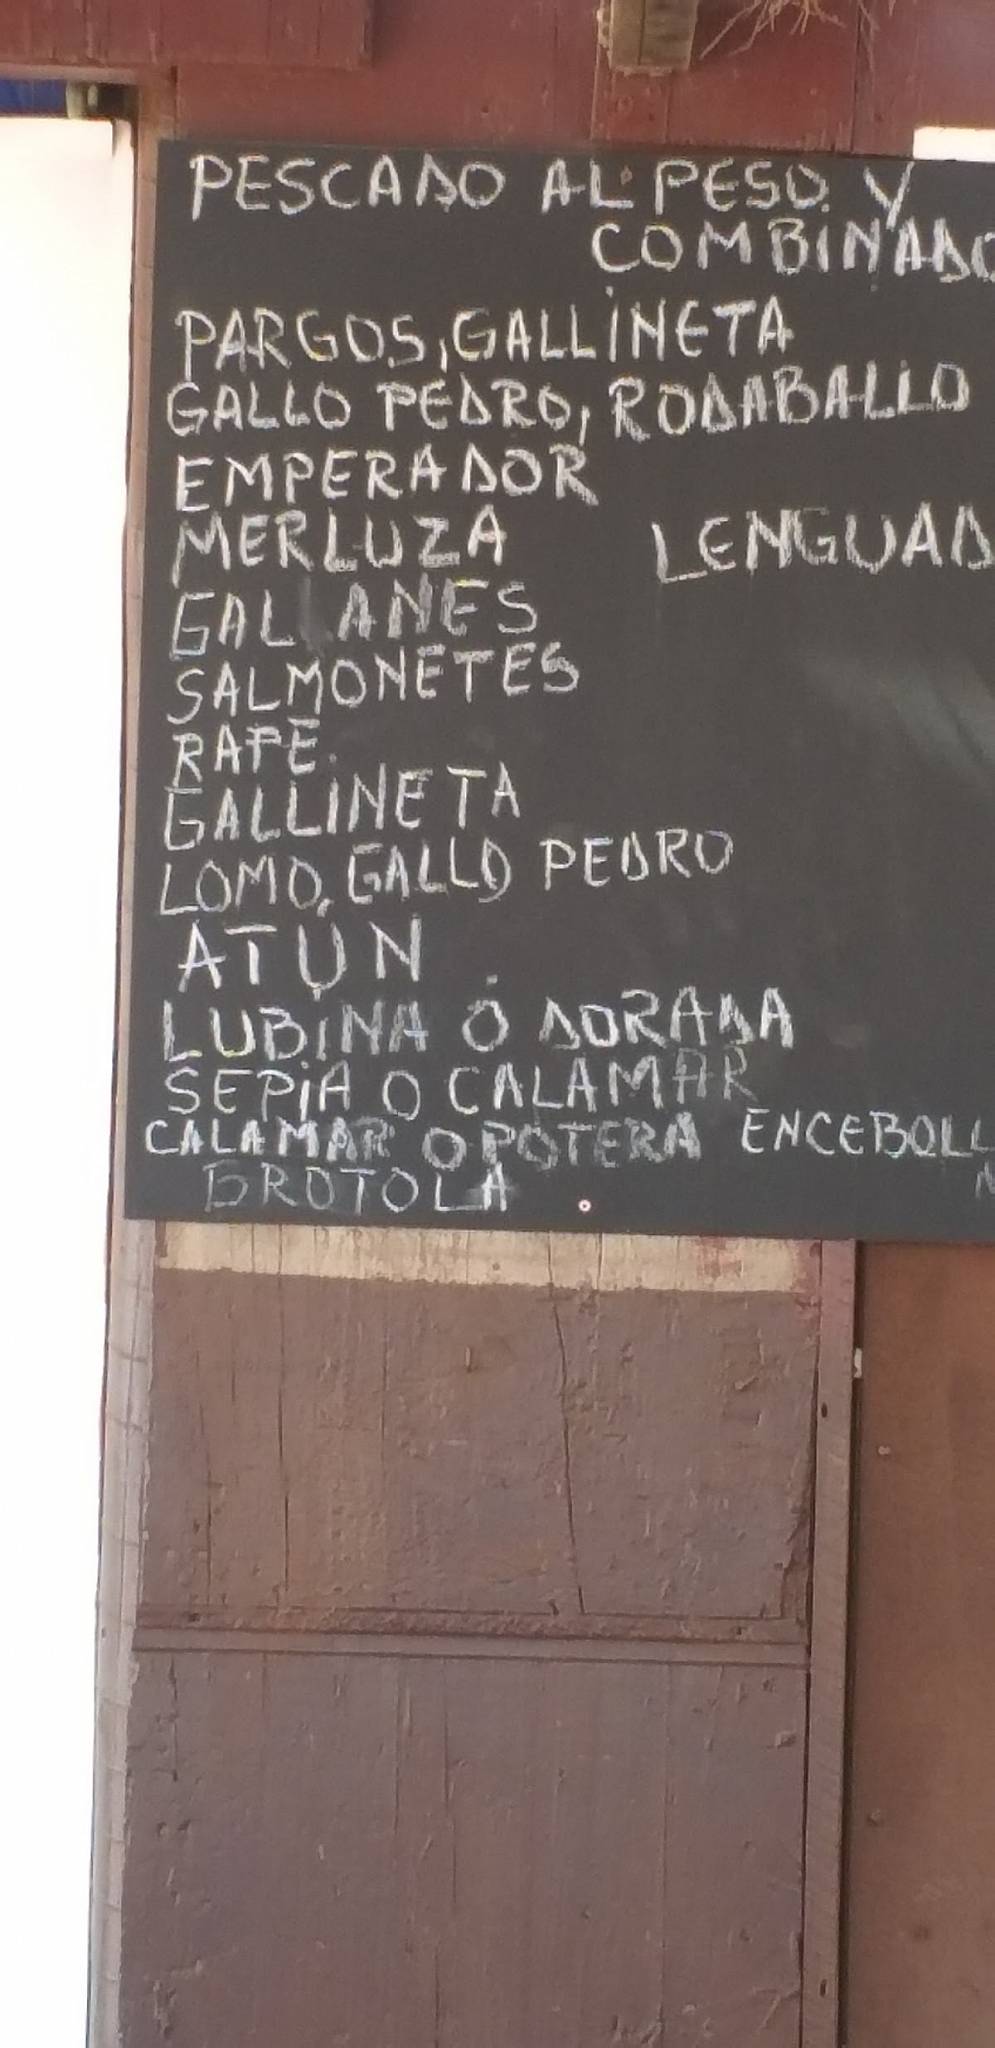 PESCADO AL PESO Y
COMBINADO
PARGOS, GALLINETA
GALLO PEDRO, RODABALLO
EMPERADOR
MERLUZA LENGUAD
GALLANES
SALMONETES
RAPE.
GALLINETA
LOMO, GALLO PEDRO
ATÚN
LUBINA Ó DORADA
SEPIA O CALAMAR
CALAMAR O POTERA ENCEBOLL
BROTOLA